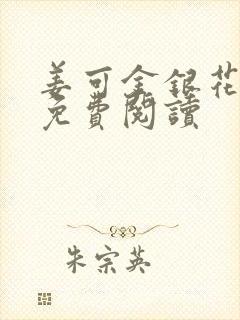 姜可金銀花
免費閱讀
朱宗英